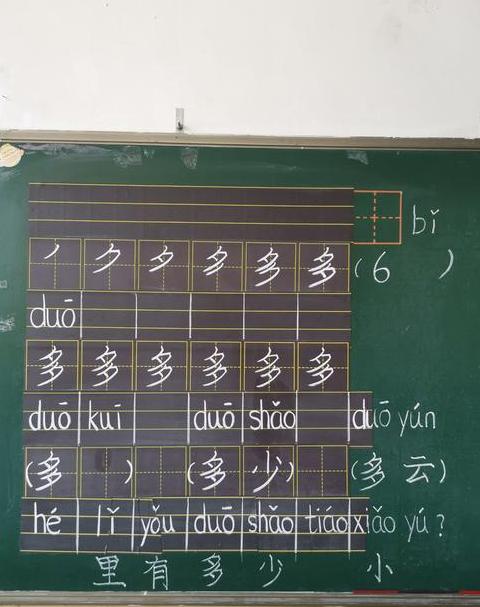 bǐ
丿 𠂊 夕 多 多 (6 )
duō
多 多 多 多 多 多
duō kuī duō shǎo duō yún
(多 ) (多 少) (多 云)
hé lǐ yǒu duō shǎo tiáo xiǎo yú ?
里 有 多 少 小